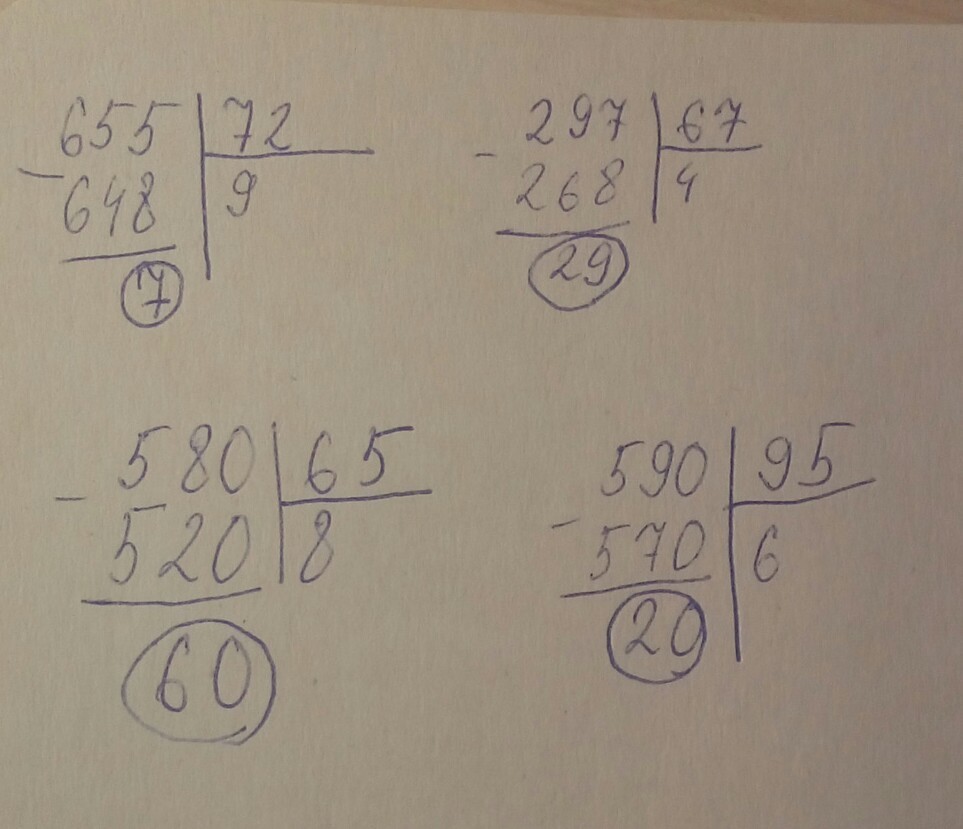 655 72
- 648 9
7
297 67
- 268 4
29
580 65
- 520 8
60
590 95
- 570 6
20